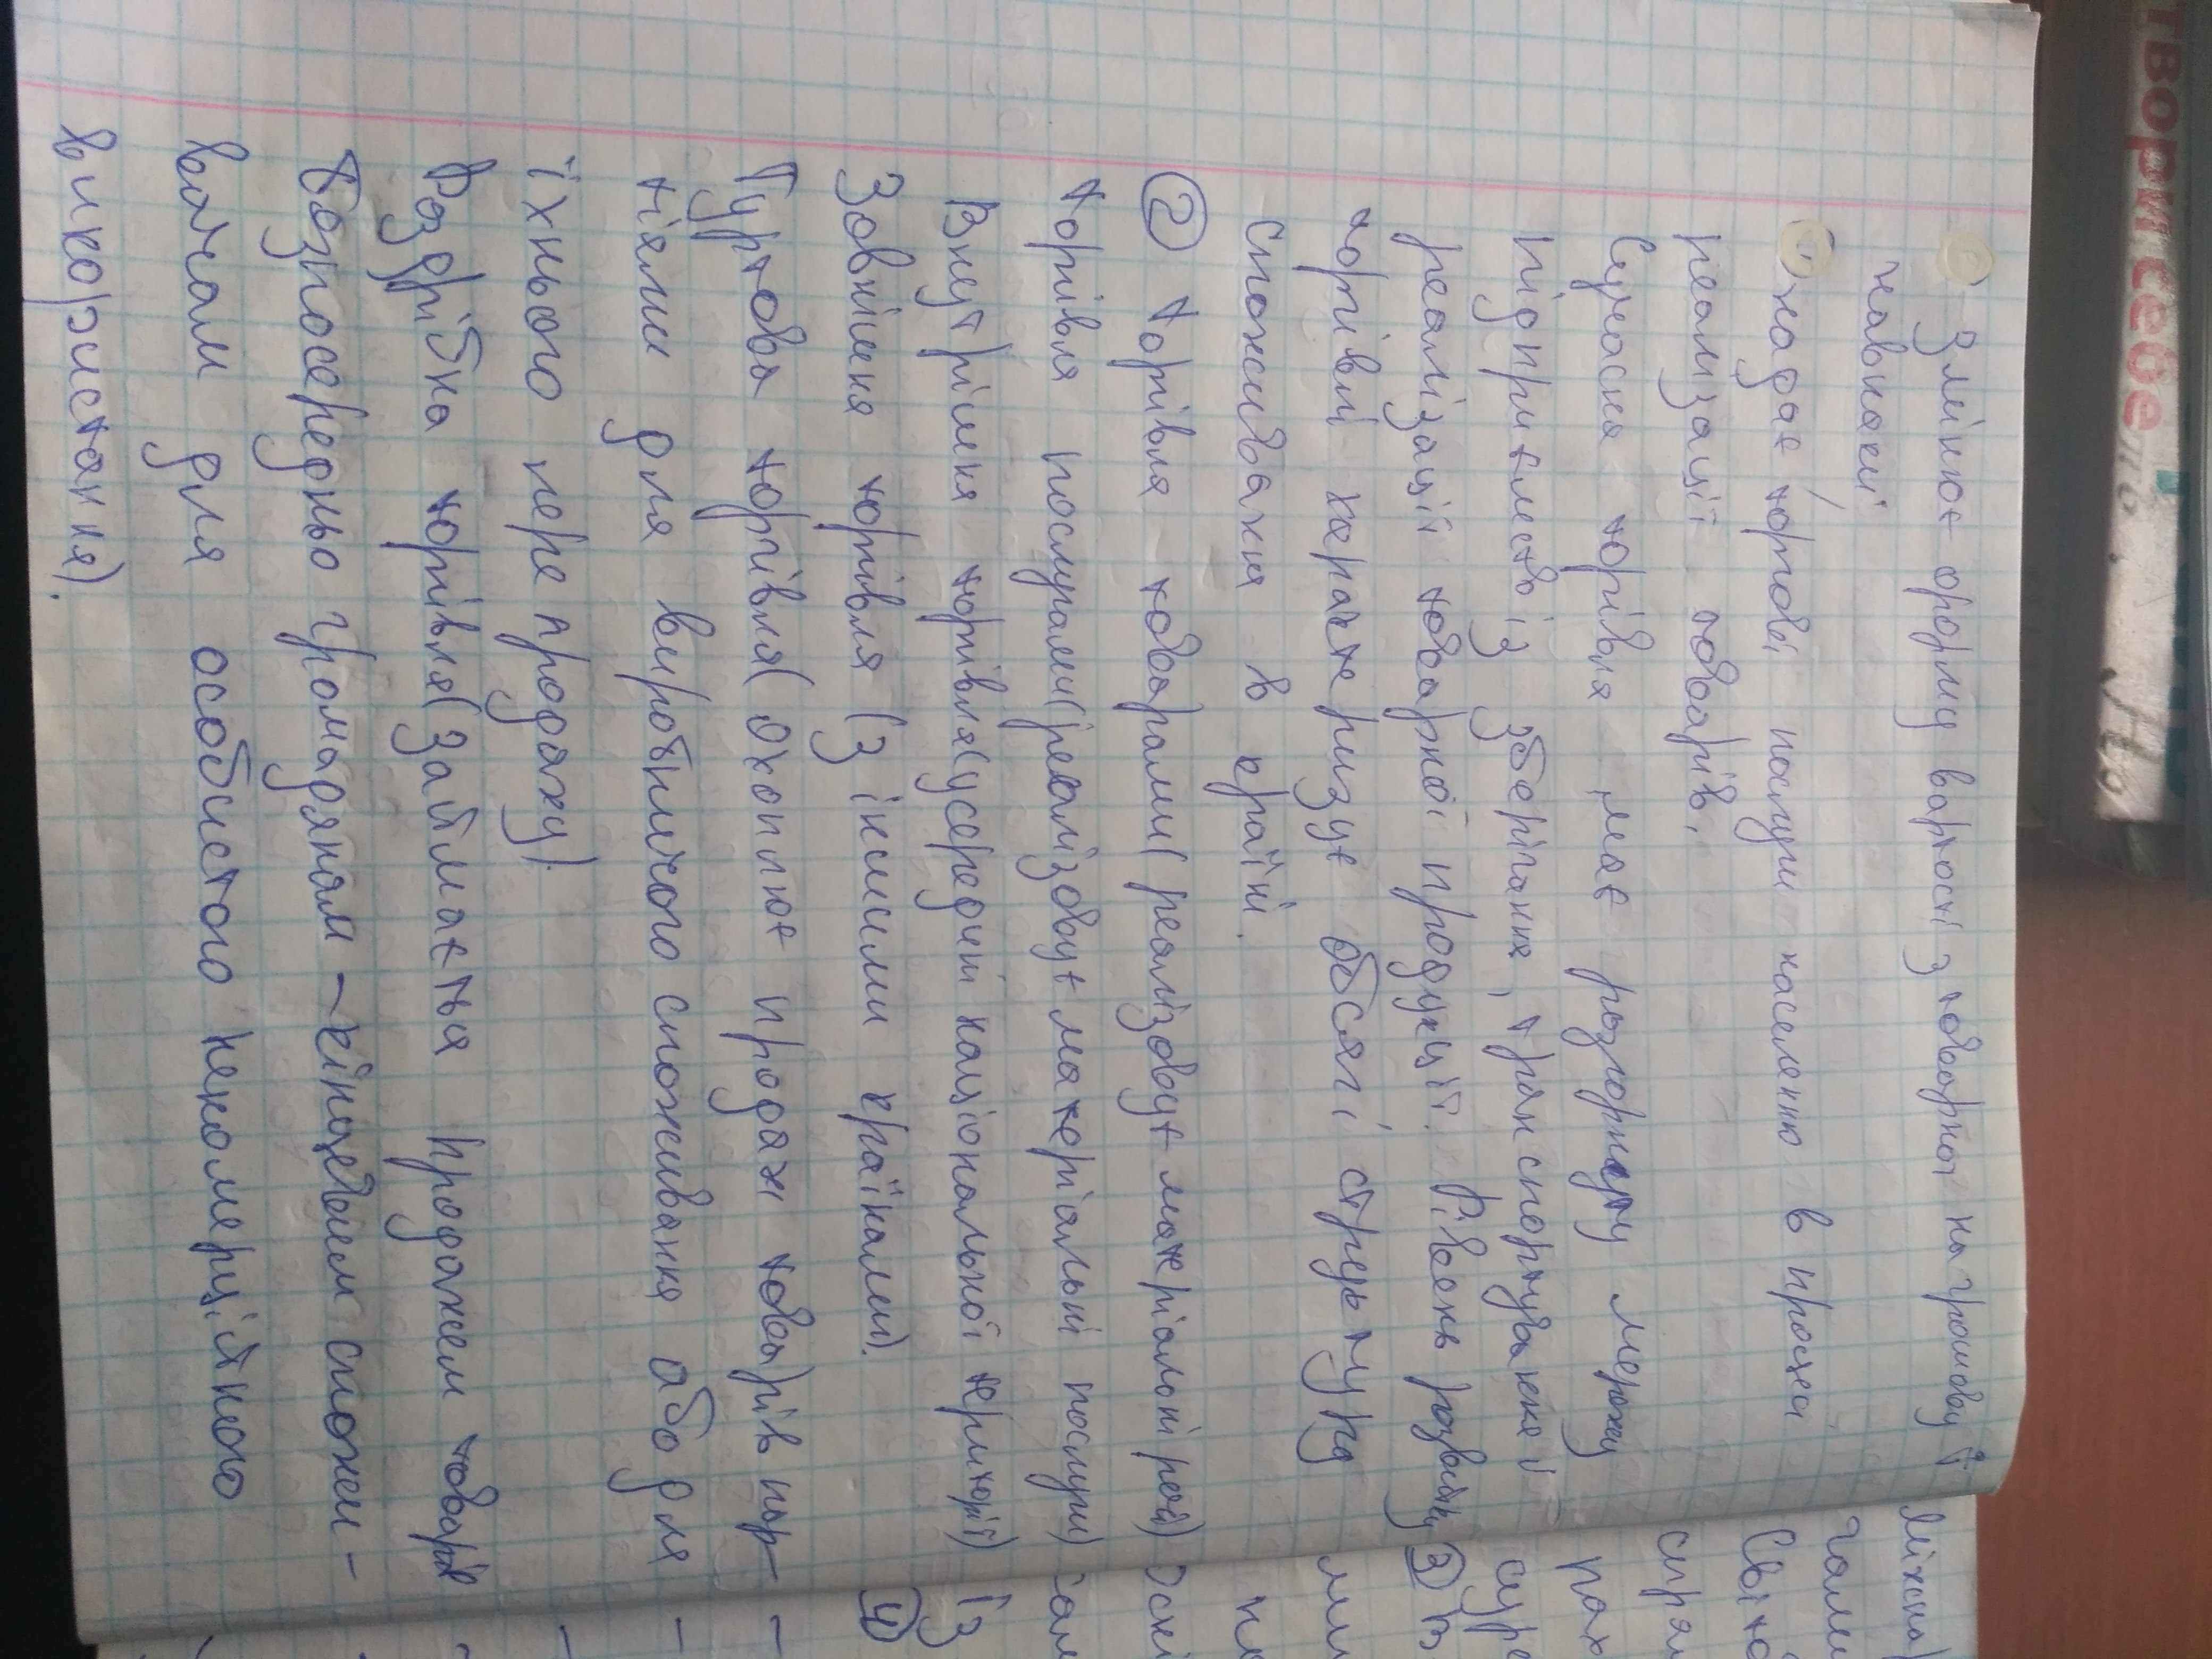 ) Змінює форму вартості з товарної на грошову й
навпаки
) надає торгові послуги населенню в процесі
реалізації товарів.
Сучасна торгівля має розгорнуту мережу
підприємств із зберігання, транспортування й
реалізації товарної продукції. Рівень розвитку
торгівлі характеризує обсяг і структуру
споживання в країні.
② торгівля товарами(реалізовує матеріальні речі)
торгівля послугами(реалізовує матеріальні послуги)
Внутрішня торгівля(усередині національної території)
Зовнішня торгівля (з іншими країнами).
Гуртова торгівля(охоплює продаж товарів пар-
тіями для виробничого споживання або для
їхнього перепродажу).
Роздрібна торгівля(займається продажем товарів
безпосередньо громадянам - кінцевим спожи-
вачам для особистого некомерційного
використання).
творисебе
③
④
із